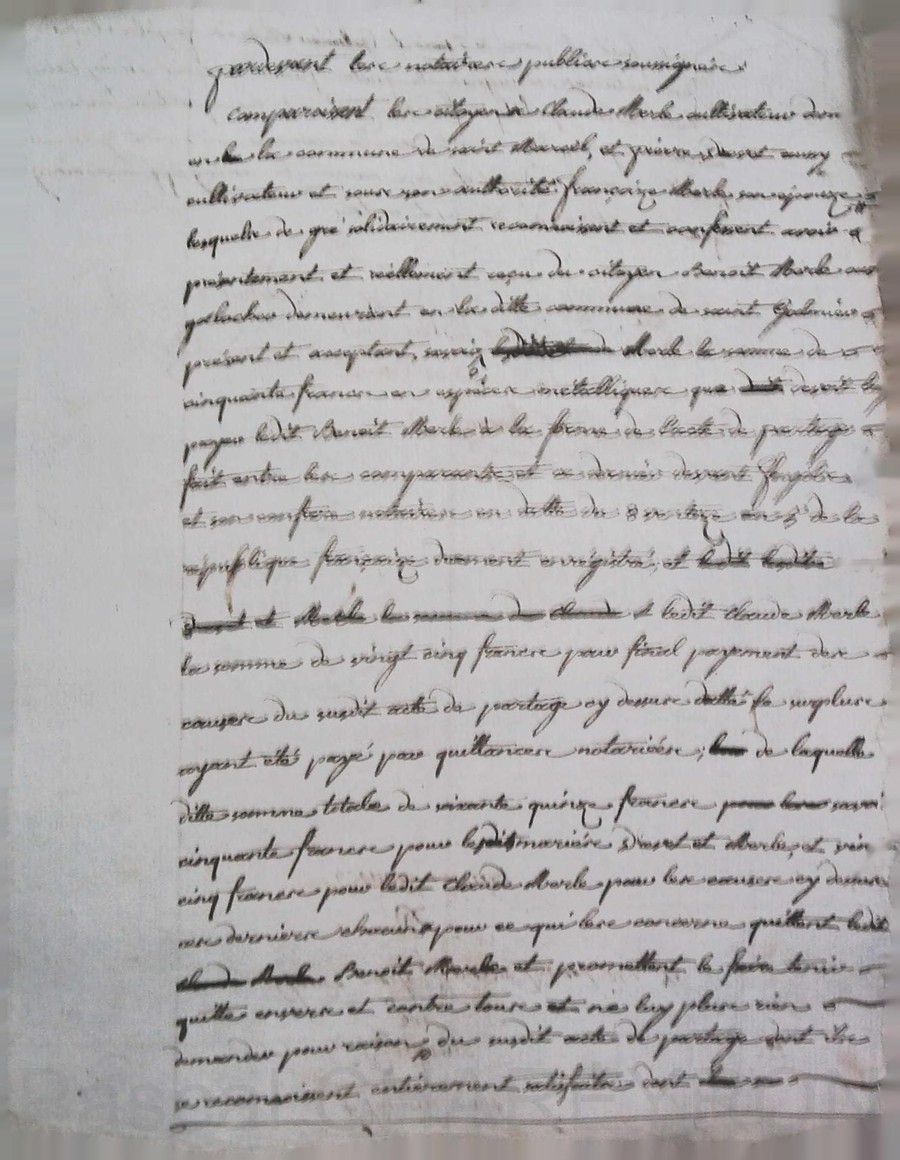 pardevant les notaires publics soussignés
comparaissent les citoyen Claude Merle cultivateur dem
en la commune de saint Marcel, et pierre Duret aussy
cultivateur et sous son authorité françoize Merle son epouze
lesquels de gré solidairement reconnaissent et confessent avoir
présentement et réellement reçu du citoyen Benoit Merle
demeurant en la ditte commune de saint Galmier
présent et acceptant, savoir Merle la somme de
cinquante francs en espèces métalliques que devoit luy
payer ledit Benoit Merle à la forme de l'acte de partage
fait entre les comparants et ce dernier devant
et son confrere notaires en datte du 8 ventoze an 5e de la
republique françaize duement enregistré; et
et Merle la somme de Claude & ledit Claude Merle
la somme de vingt cinq francs pour final payement des
causes du susdit acte de partage cy dessus datté le surplus
ayant été payé par quittances notariées; de laquelle
ditte somme totale de soixante quinze francs savoir
cinquante francs pour lesdits mariés Duret et Merle, et vin
cinq francs pour ledit Claude Merle pour les causes cy dessus
ces derniers chacun pour ce qui les concerne quittent ledit
Benoit Merle et promettent le faire tenir
quitte envers et contre tous et ne luy plus rien
demander pour raison du susdit acte de partage dont ils
se reconnoissent entièrement satisfaits dont